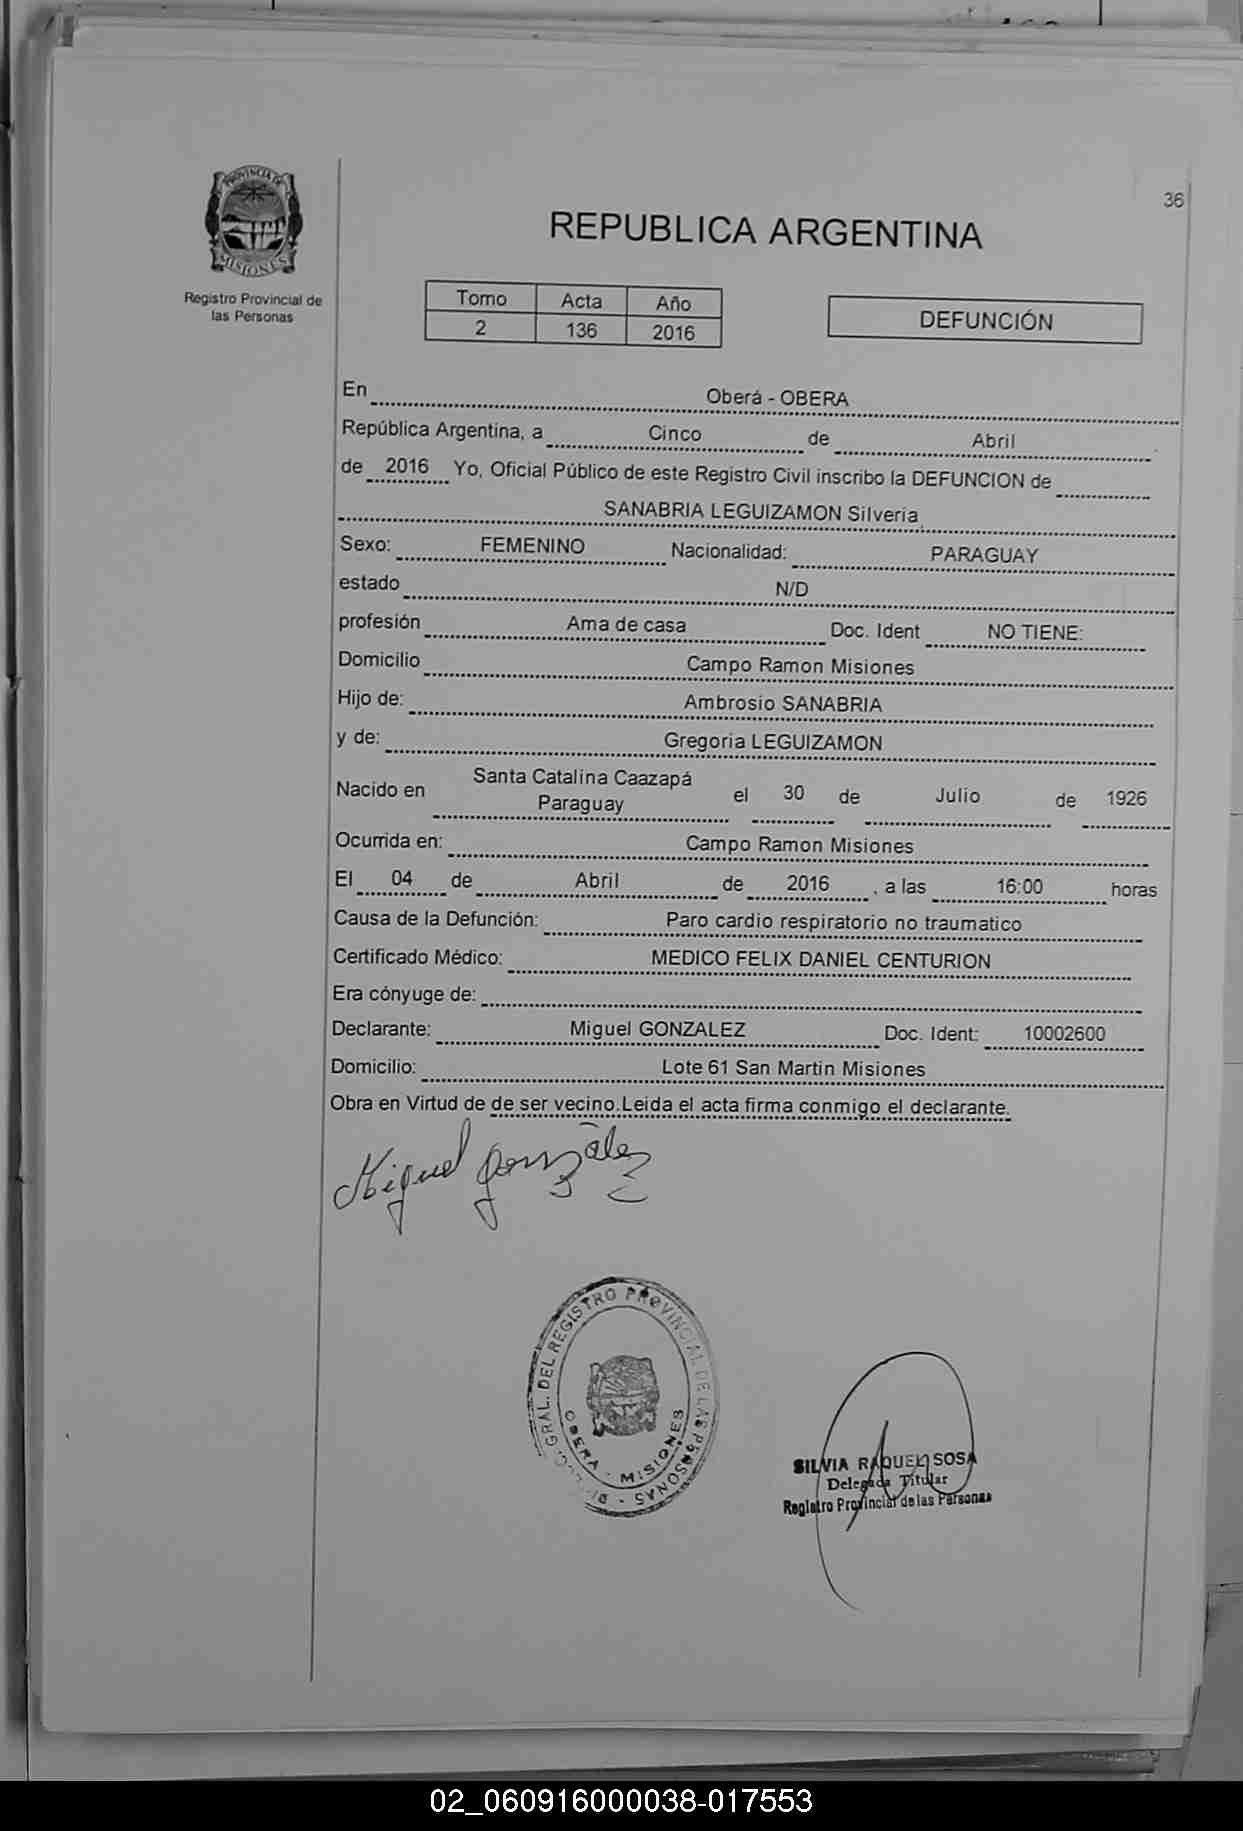 36
PROVINCIA DE
MISIONES
Registro Provincial de
las Personas
REPUBLICA ARGENTINA
Tomo Acta Año
2 136 2016
DEFUNCIÓN
En Oberá - OBERA
República Argentina, a Cinco de Abril
de 2016 Yo, Oficial Público de este Registro Civil inscribo la DEFUNCION de
SANABRIA LEGUIZAMON Silveria
Sexo: FEMENINO Nacionalidad: PARAGUAY
estado N/D
profesión Ama de casa Doc. Ident NO TIENE:
Domicilio Campo Ramon Misiones
Hijo de: Ambrosio SANABRIA
y de: Gregoria LEGUIZAMON
Nacido en Santa Catalina Caazapá
Paraguay el 30 de Julio de 1926
Ocurrida en: Campo Ramon Misiones
El 04 de Abril de 2016 , a las 16:00 horas
Causa de la Defunción: Paro cardio respiratorio no traumatico
Certificado Médico: MEDICO FELIX DANIEL CENTURION
Era cónyuge de:
Declarante: Miguel GONZALEZ Doc. Ident: 10002600
Domicilio: Lote 61 San Martin Misiones
Obra en Virtud de de ser vecino.Leida el acta firma conmigo el declarante.
Miguel González
GRAL. DEL REGISTRO PROVINCIAL DE LAS PERSONAS
OBERA - MISIONES
SILVIA RAQUEL SOSA
Delegada Titular
Registro Provincial de las Personas
02_060916000038-017553